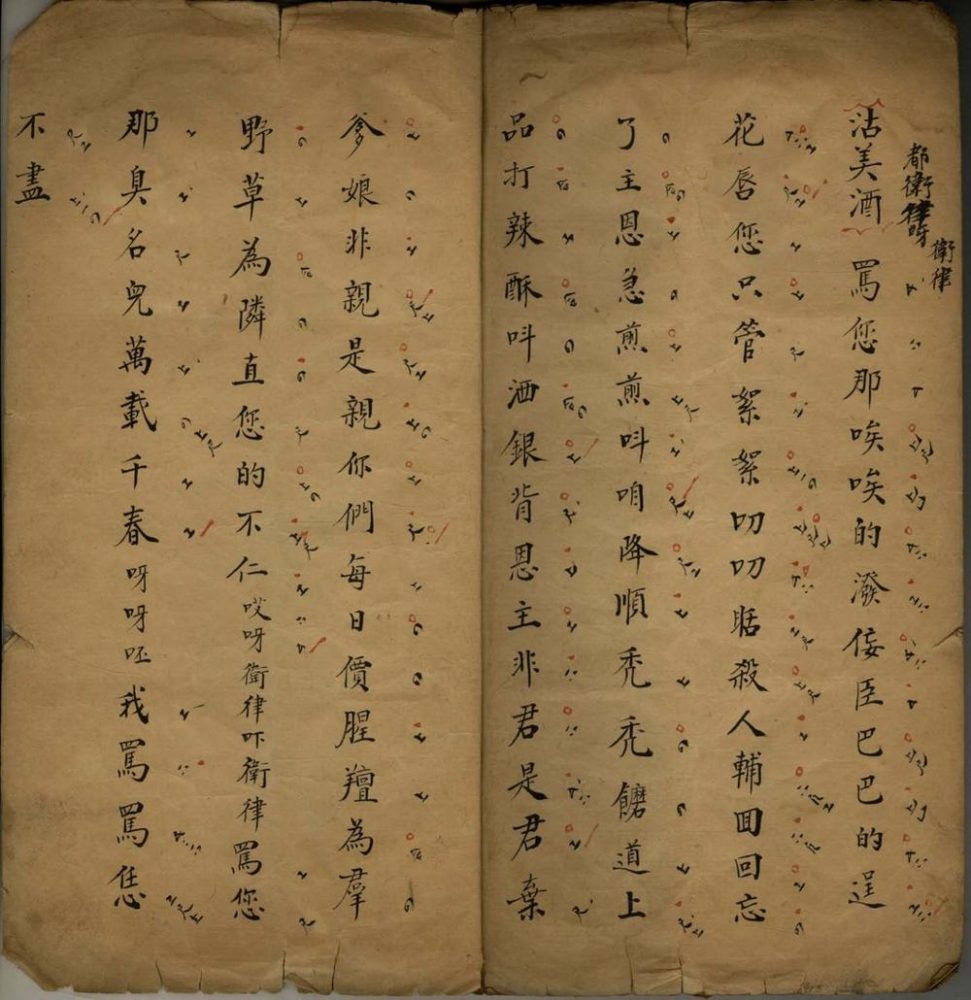 都衛律呀
衛律
沽美酒 罵您那唉唉的潑佞臣巴巴的逞
花唇您只管絮絮叨叨聒殺人輔囬回忘
了主恩急煎煎呌咱降順禿禿饝道上
品打辣酥呌洒銀背恩主非君是君棄
爹娘非親是親你們每日價腥羶為羣
野草為隣直您的不仁哎呀衛律吓衛律罵您
那臭名皃萬載千春呀呀呸我罵罵恁
不盡